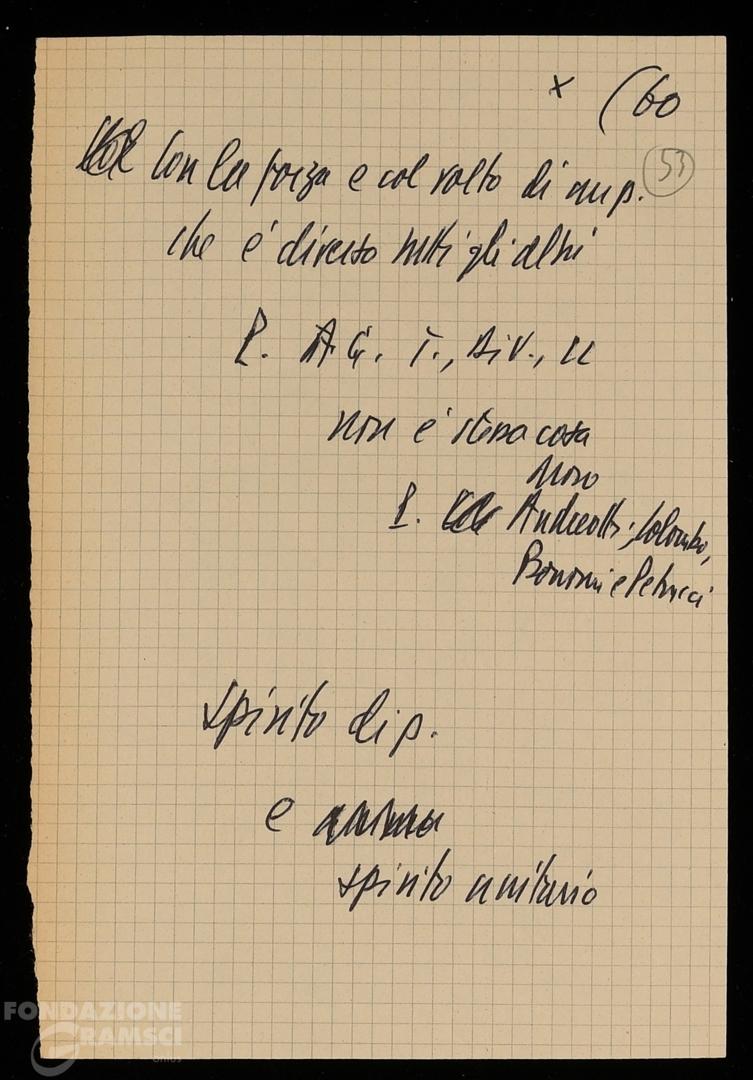 x (60
53
Con la forza e col volto di un p.
che è diverso tutti gli altri
P. A. G. T., Di V., 
non è stessa cosa
Moro
P. Andreotti, Colombo,
Bonomi e Petrucci
spirito di p.
e
spirito unitario
FONDAZIONE
GRAMSCI
onlus